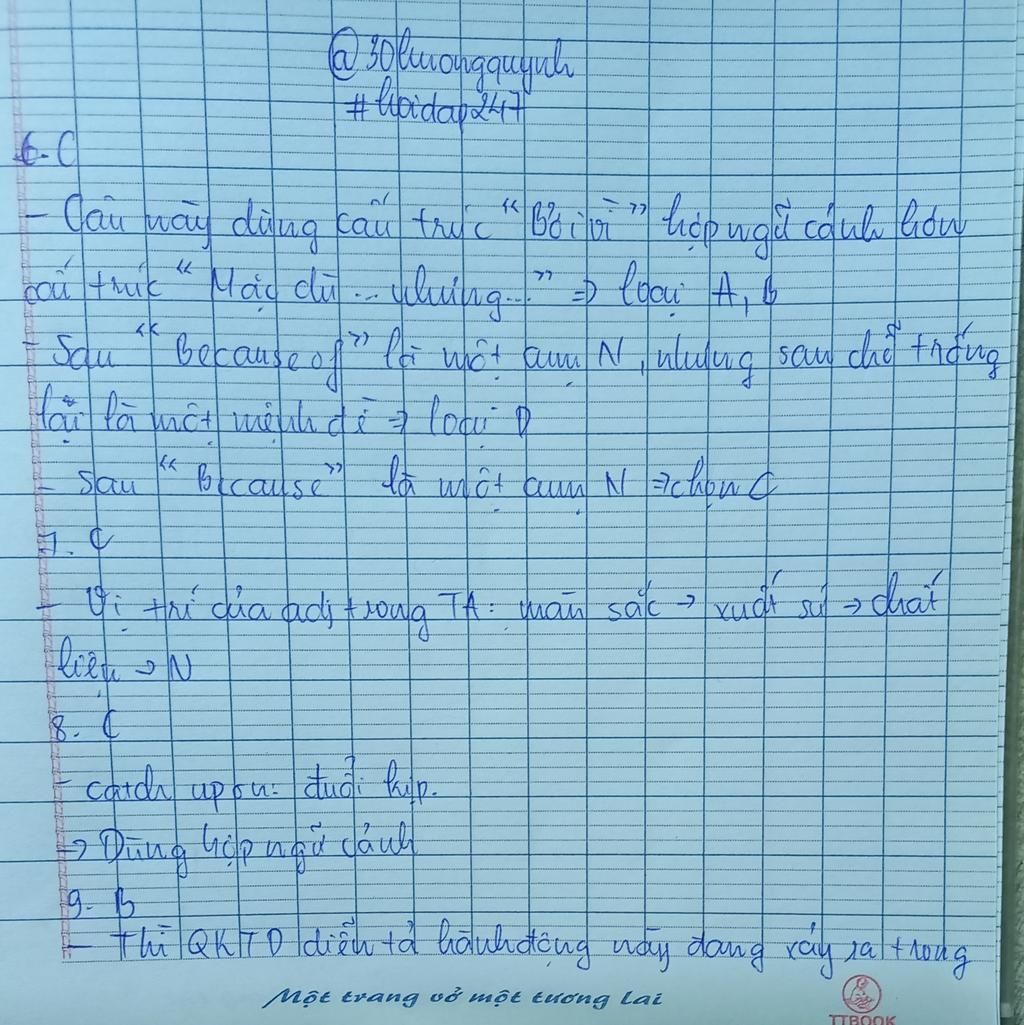 @30luongquynh
#hoidap247
6. C
- Câu này dùng cấu trúc "Bởi vì" hợp ngữ cảnh hơn
cấu trúc "Mặc dù ... nhưng..." => loại A, B
- Sau "Because of" là một cụm N, nhưng sau chỗ trống
lại là một mệnh đề => loại D
- Sau "Because" là một cụm N => chọn C
7. C
- Vị trí của adj trong TA: màu sắc → xuất sứ → chất
liệu → N
8. C
- catch up on: đuổi kịp.
→ Dùng hợp ngữ cảnh
9. B
- Thì QKTD diễn tả hành động này đang xảy ra trong
Một trang vở một tương lai
TTBOOK